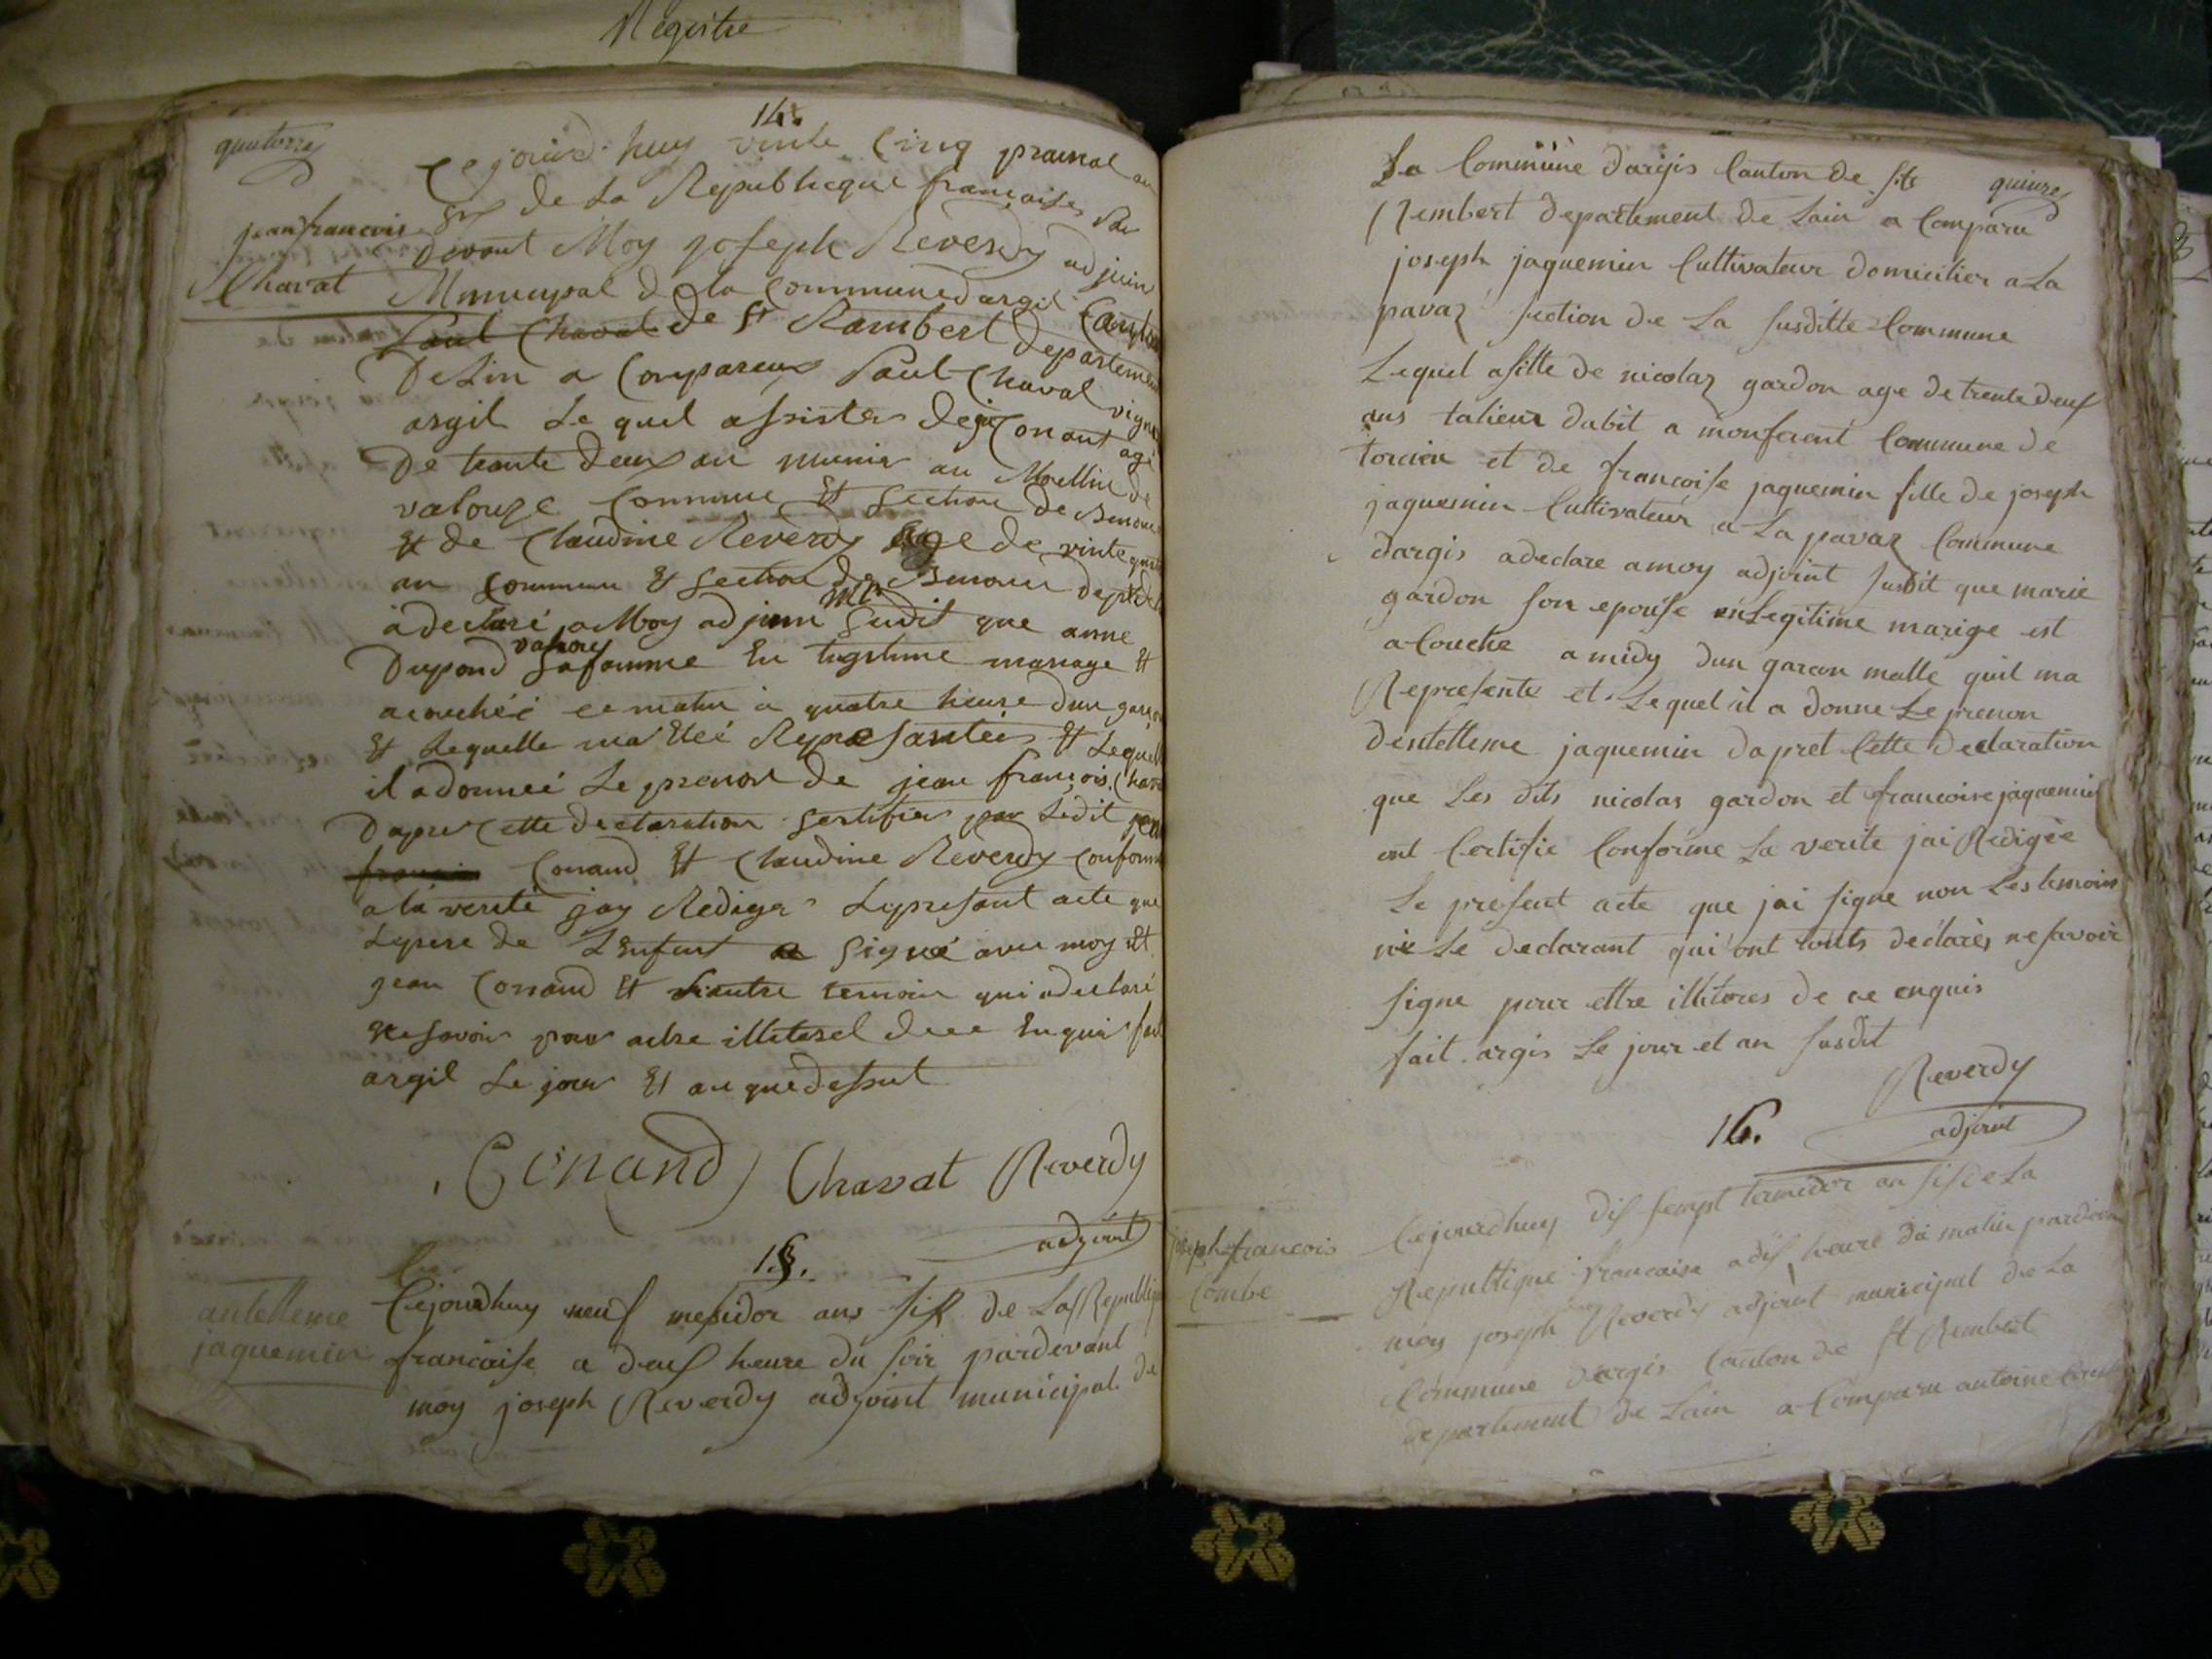 Registre
quatorze
14.
Ce jourd. huy vinte Cinq prairial an
six de La Republicque françaises Par
jean francois
devant Moy Joseph Reverdy adjuin
Chavat
Municipal de la Commune dargil Canton
Paul Chavat de St Rambert departement
De Lin a Compareus Paul Chaval vigne
argil Le quel assister de jean Conant agé
De trante deux an munier au Moullin de
valouze Commune Et Section de
Et de Claudine Reverdy age de vinte quatre
an Commune Et Section de
a declaré a Moy adjuin mpl Sudit que anne
Dupond vahouy sa famme En legitime mariage Et
acouchéé ce matin à quatre heure dun garçon
Et Lequelle ma Etéé Represantéés Et Lequelle
il a donneé Le prenon de jean françois Chava
Dapres Cette declaration Certifier par Ledit jean
francois Conand Et Claudine Reverdy Conforme
a la verité jay Rediger Lepresant acte que
Lepere de LEnfant a Signé avec moy Et
jean Conand Et Lautre temoin qui a declaré
ne savoir pour aitre illiteret de ce Enquis fait
argil Le jour Et an que dessut
Conand Chavat Reverdy
adjoint
15.
antelleme
jaquemin
Cejourdhuy neuf mesidor ans six de La Republique
francaise a deux heure du soir pardevant
moy joseph Reverdy adjoint municipal de
quinze
La Commune dargis Canton de st
Rembert departement de Lain a Comparu
joseph jaquemin Cultivateur domicilier a La
pavaz section de La susditte Commune
Lequel assitte de nicolaz gardon age de trente deux
ans talieur dabit a monferent Commune de
torcieu et de francoise jaquemin fille de joseph
jaquemin Cultivateur a La pavaz Commune
dargis a declare a moy adjoint susdit que marie
gardon son epouse en Legitime marige est
a Couche a midy dun garcon malle quil ma
Represente et Lequel il a donne Le prenon
dentelleme jaquemin dapret Cette declaration
que Les dits nicolas gardon et francoise jaquemin
ont Certifie Conforme La verite jai Redigée
Le present acte que jai signe non Les temoins
nie Le declarant qui ont touts déclarés ne savoir
signe pour ettre illitores de ce enquis
fait argis Le jour et an susdit
Reverdy
adjoint
16.
joseph francois
Combe
Cejourdhuy dix sempt termidor an six de La
Republique francaise a dix heure du matin pardevan
moy joseph Reverdy adjoint municipal de La
Commune dargis Canton de st Rembert
departement de Lain a Comparu antoine